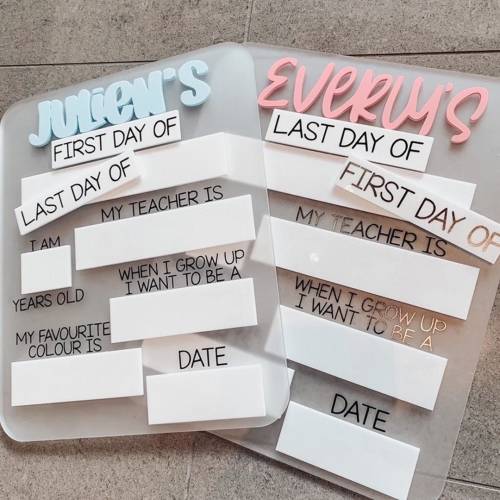 Julien's
FIRST DAY OF
LAST DAY OF
MY TEACHER IS
I AM
YEARS OLD
WHEN I GROW UP
I WANT TO BE A
MY FAVOURITE
COLOUR IS
DATE
Everly's
LAST DAY OF
FIRST DAY OF
MY TEACHER IS
WHEN I GROW UP
I WANT TO BE A
DATE